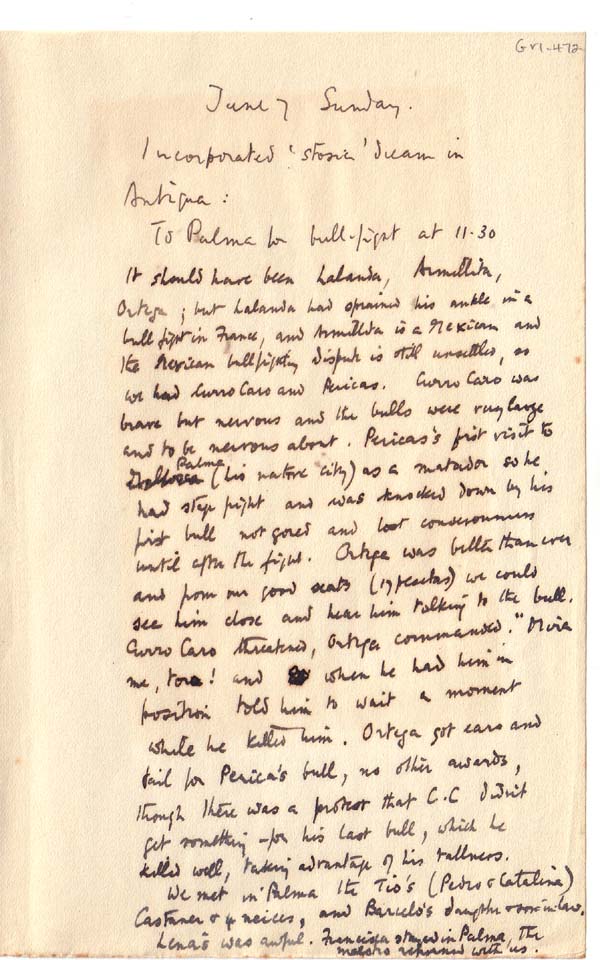 GV1-472
June 7 Sunday.
Incorporated 'stosia' dream in
Antigua :
To Palma for bull-fight at 11-30
It should have been Lalanda, Armillita,
Ortega ; but Lalanda had sprained his ankle in a
bull fight in France, and Armillita is a Mexican and
the Mexican bullfighting dispute is still unsettled, so
we had Curro Caro and Pericas. Curro Caro was
brave but nervous and the bulls were very large
and to be nervous about. Pericas's first visit to
Palma
(his native city) as a matador so he
had stage fright and was knocked down by his
first bull not gored and lost consciousness
until after the fight. Ortega was better than ever
and from our good seats (17 pesetas) we could
see him close and hear him talking to the bull.
Curro Caro threatened, Ortega commanded. "Mira
me, toro! and when he had him in
position told him to wait a moment
while he killed him. Ortega got ears and
tail for Perica's bull, no other awards,
though there was a protest that C.C didn't
get something - for his last bull, which he
killed well, taking advantage of his tallness.
We met in Palma the Tio's (Pedro & Catalina)
Castaner & 4 neices, and Barcelo's daughter & son-in-law.
Lena's was awful. Francisca stayed in Palma, the
maestro returned with us.